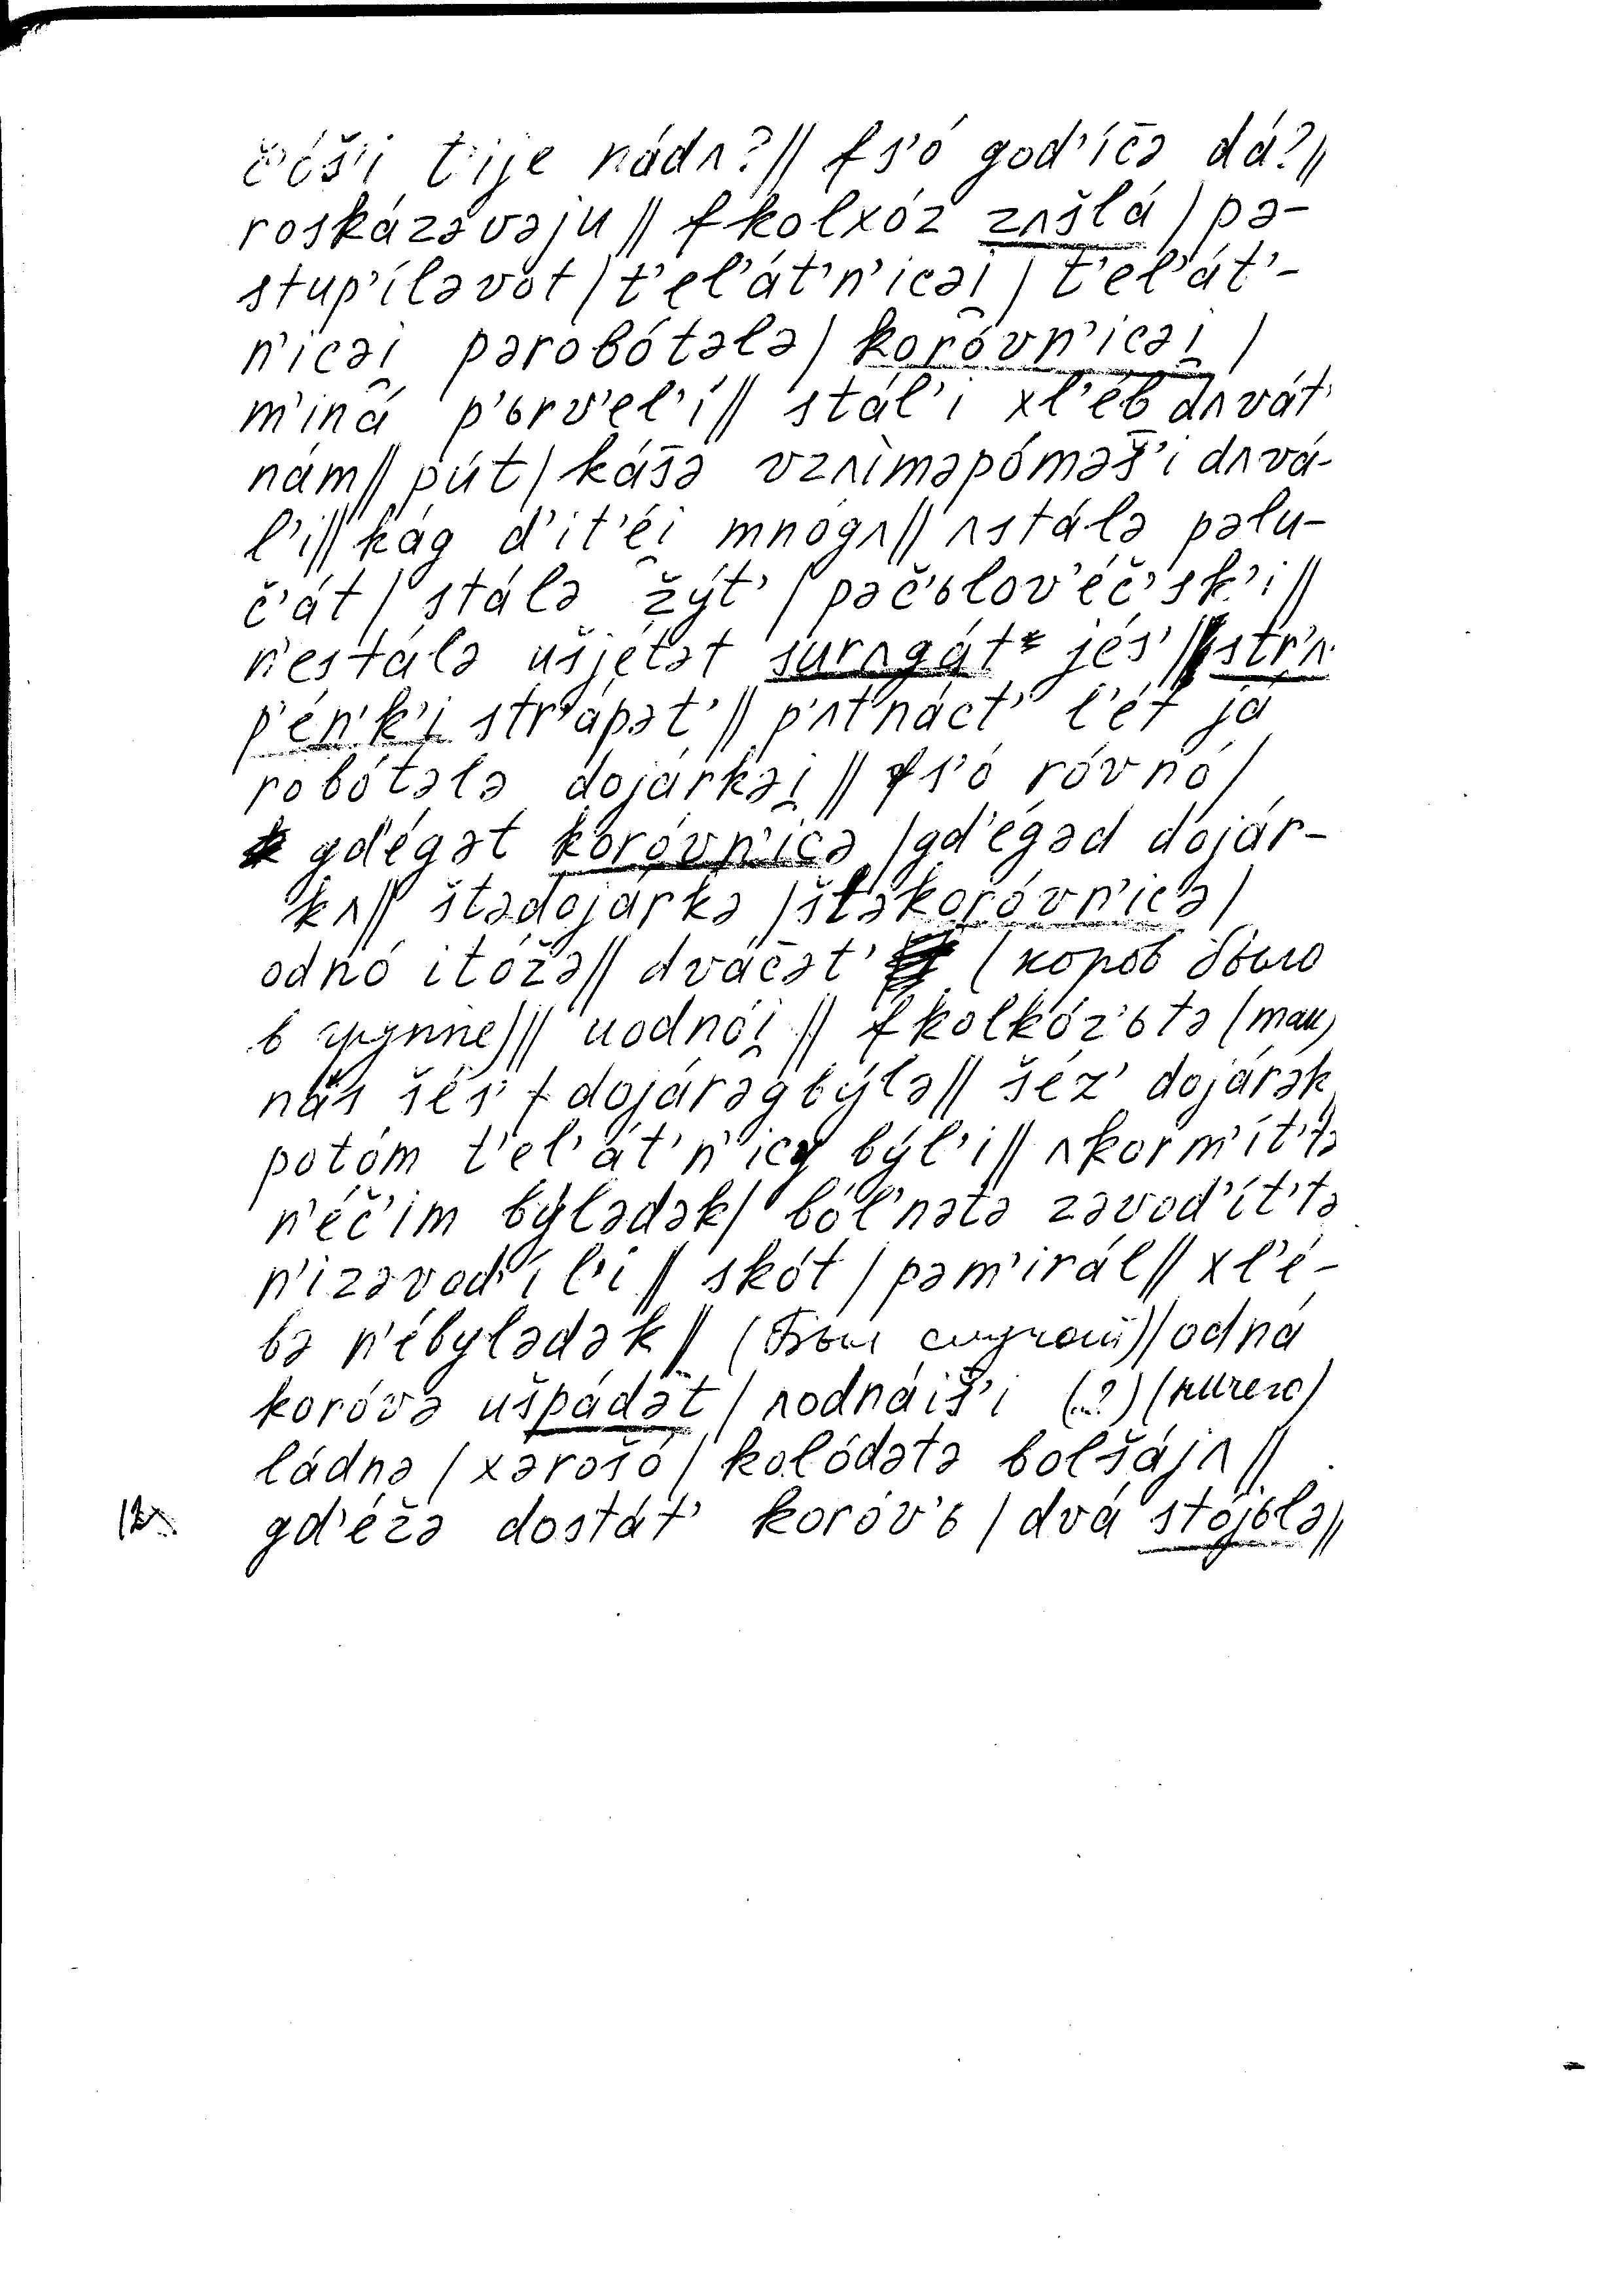 č’óš’i t’ije nádʌ?// fs’ó god’íc̄ə dá?//
roskázəvəju // fkolxóz zʌšlá / pə-
stup’íləvot / t’el’át’n’icəi̯ / t’el’át’-
n’icəi̯ pərobótələ / koróvn’icəi̯ /
m’iná p’ьrv’el’í // stál’i xl’éb dʌvát’
nám // pút / kás̄ə vzʌìməpóməš̄’i dʌvá-
l’i // kág d’it’éi̯ mnógʌ // ʌstálə pəlu-
č’át / stálə žýt’ / pəč’ьlov’éč’sk’i //
n’estálə ušjétət surʌgát jés’ // str’ʌ
p’én’k’i str’ápət’ // p’ʌtnáct’ l’ét já
robótələ dojárkəi̯ // fs’ó róvnó /
gd’égət koróvn’icə / gd’égəd dojár-
kʌ // štədojárkə / štəkoróvn’icə /
odnó itóžə // dvác̄ət’ (коров было
в группе) // uodnói̯ // fkolkóz’ьtə (там)
nás šés’ dojárəgbýlə // šéz’ dojárək
potóm t’el’át’n’icy býl’i // ʌkorm’ít’tə
n’éč’im býlədək / ból’nətə zəvod’ít’tə
n’izəvod’íl’i // skót / pəm’irál // xl’é-
bə n’ébylədək // (Был случай) // odná
koróvə ušpádət / ʌodnáiš̄’i (...?) (ничего)
ládnə / xərošó / kolódətə bolšájʌ //
gd’éžə dostát’ koróv’ь / dvá stójьlə //